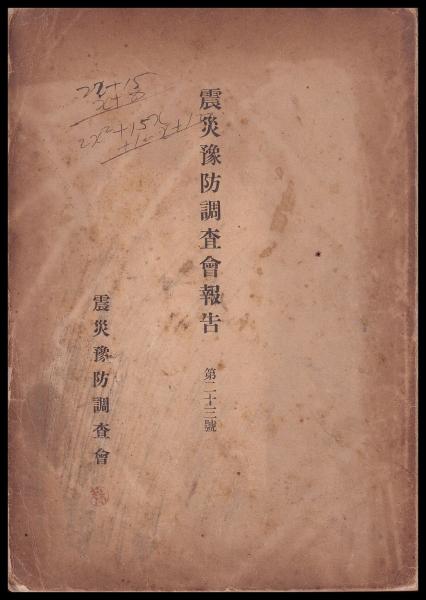 震災豫防調査會報告
第二十三號
震災豫防調査會
2x+15
2x²+15x